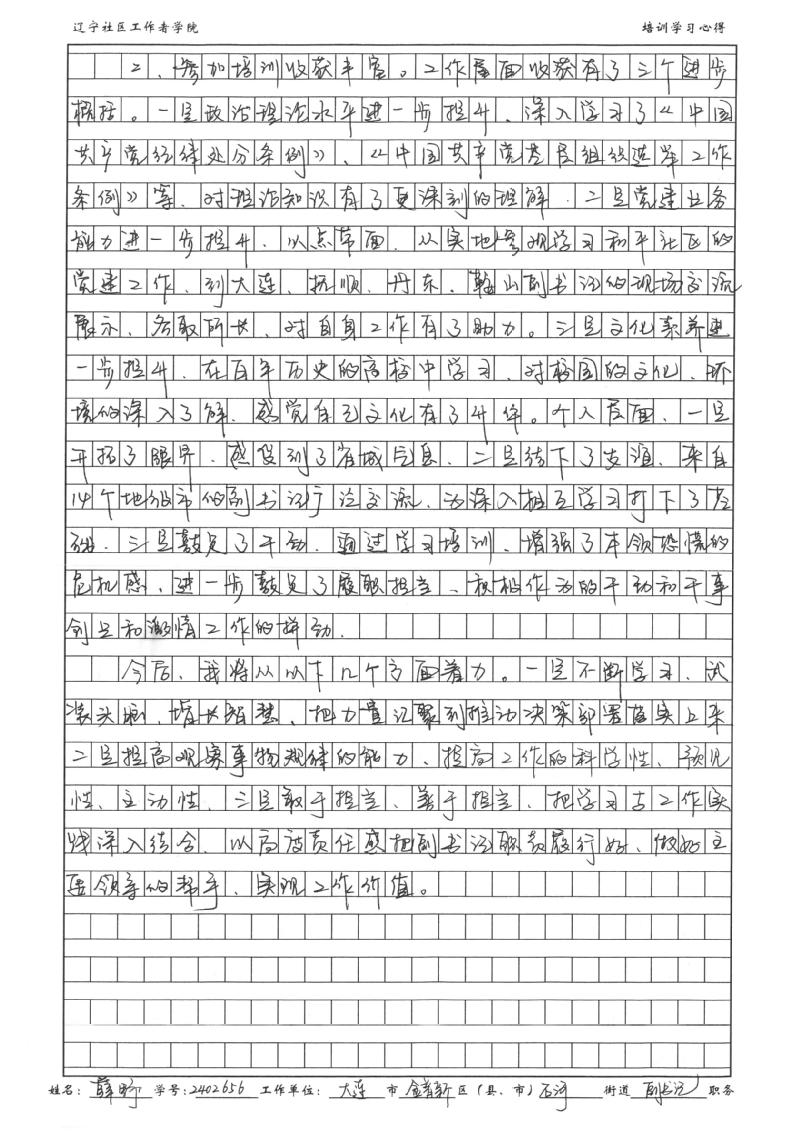 辽宁社区工作者学院 培训学习心得
2、参加培训收获丰富。工作层面收获有了三个进步
概括。一是政治理论水平进一步提升，深入学习了《中国
共产党纪律处分条例》、《中国共产党基层组织选举工作
条例》等，对理论知识有了更深刻的理解，二是党建业务
能力进一步提升，以点带面，从实地参观学习和平社区的
党建工作，到大连、抚顺、丹东、鞍山副书记的现场交流
展示，各取所长，对自身工作有了助力。三是文化素养进
一步提升，在百年历史的高校中学习，对校园的文化、环
境的深入了解，感觉自己文化有了升华。个人层面，一是
开拓了眼界，感受到了省城气息，二是结下了友谊，来自
14个地级市的副书记广泛交流，为深入相互学习打下了基
础，三是鼓足了干劲，通过学习培训，增强了本领恐慌的
危机感，进一步鼓足了履职担当、积极作为的干劲和干事
创业和激情工作的拼劲。
今后，我将从以下几个方面着力。一是不断学习，武
装头脑，增长智慧，把力量汇聚到推动决策部署落实上来
二是提高观察事物规律的能力，提高工作的科学性、预见
性、主动性，三是敢于担当、善于担当，把学习与工作实
践深入结合，以高度责任感把副书记职责履行好，做好主
要领导的帮手，实现工作价值。
姓名： 薛 学号：2402656 工作单位： 大连 市 金普新 区（县、市） 石河 街道 副书记 职务